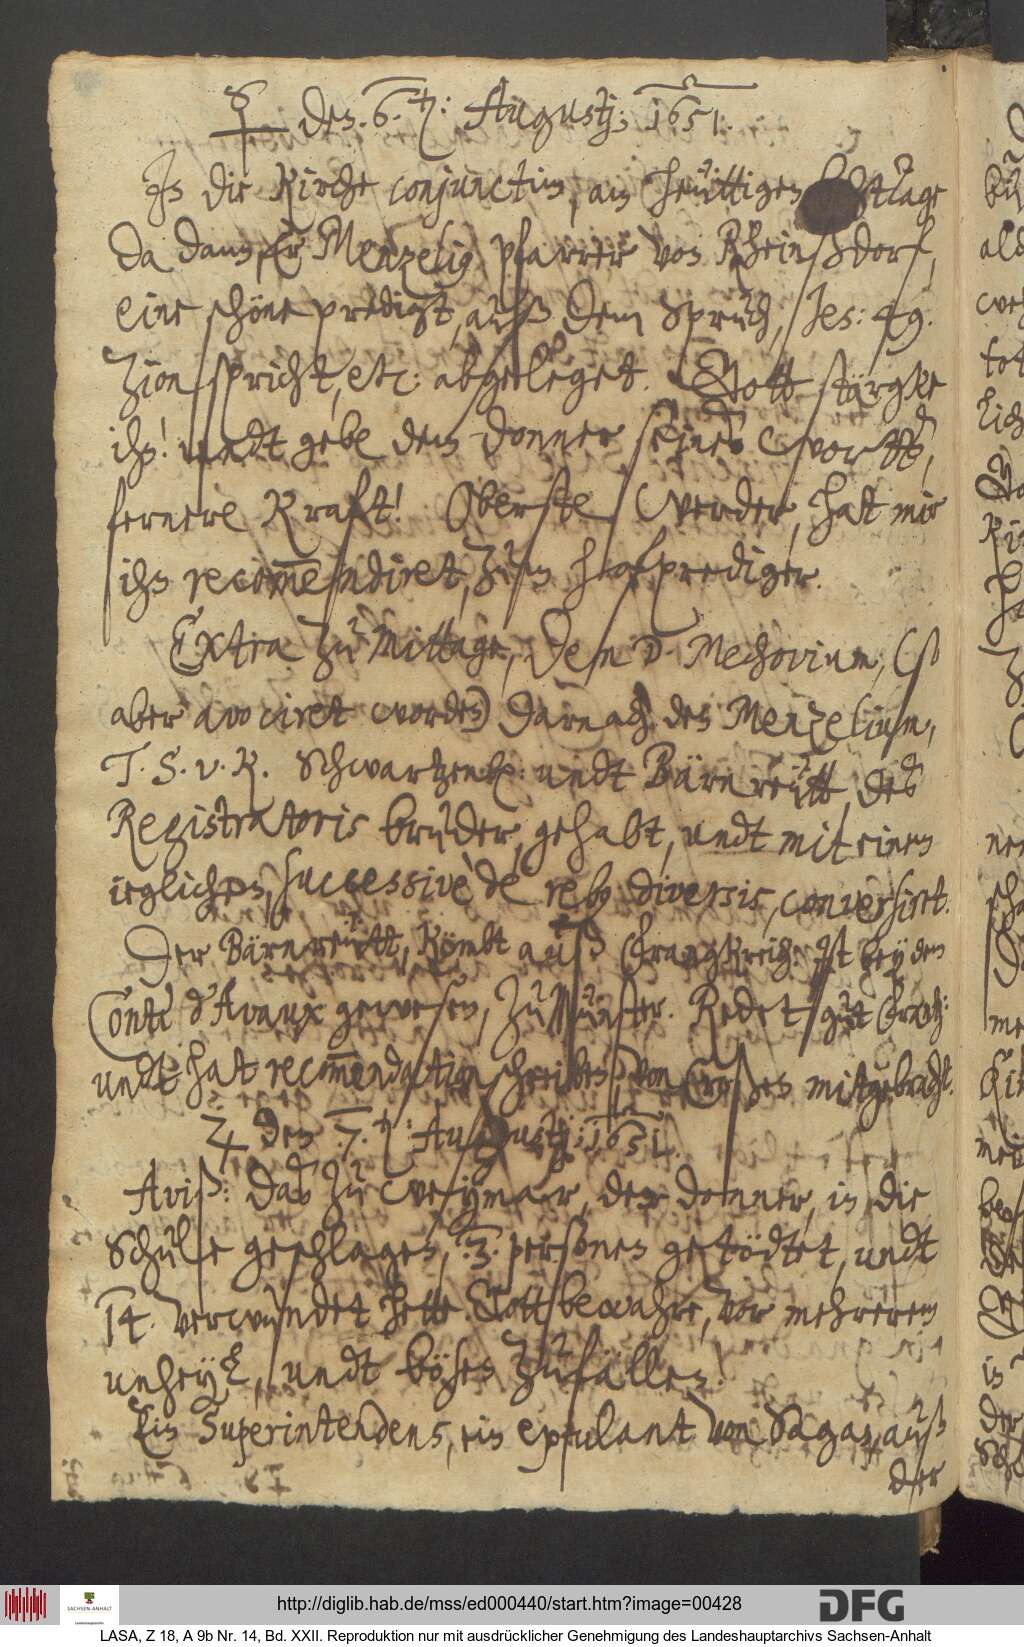 ☿ den 6.ten: Augustj; 1651.
In die Kirche conjunctim, am heüttigen Behttage
da dann, Er Menzelius pfarrer von Rheinßdorf,
eine schöne predigt, auß dem Spruch, Jes: 49.
Zion spricht, etc: abgeleget. Gott stärgke
ihn! undt gebe dem donner seines worts,
fernere Kraft! Oberster Werder, hatt mir
ihn recommendiret, zum hofprediger.
Extra zu Mittage, dem D. Mechovium, (so
aber avociret worden) darnach den Menzelium,
T. S. v. R. Schwartzenb: undt Bärnreütt, des
Registratoris bruder, gehabt, undt mit einem
ieglichen, successivè de rebus diversis, conversiret.
Der Bärnreütt, kömbt auß Frangkreich: Ist bey dem
Conte d'Avaux gewesen, zu Münster. Redet gut frantz:
undt hat recommendation schreiben, von mitgebracht.
♃ den 7. ten: Augustj; 1651.
Aviß: daß zu Weymar, der donner, in die
Schule geschlagen, 3. personen getödtet, undt
14. verwundet hette. Gott bewahre, vor mehrerem
unheyl, undt bösen zufällen!
Ein Superintendens, ein expulant von Sagan, auß
der
http://diglib.hab.de/mss/ed000440/start.htm?image=00428
SACHSEN-ANHALT
DFG
LASA, Z 18, A 9b Nr. 14, Bd. XXII. Reproduktion nur mit ausdrücklicher Genehmigung des Landeshauptarchivs Sachsen-Anhalt